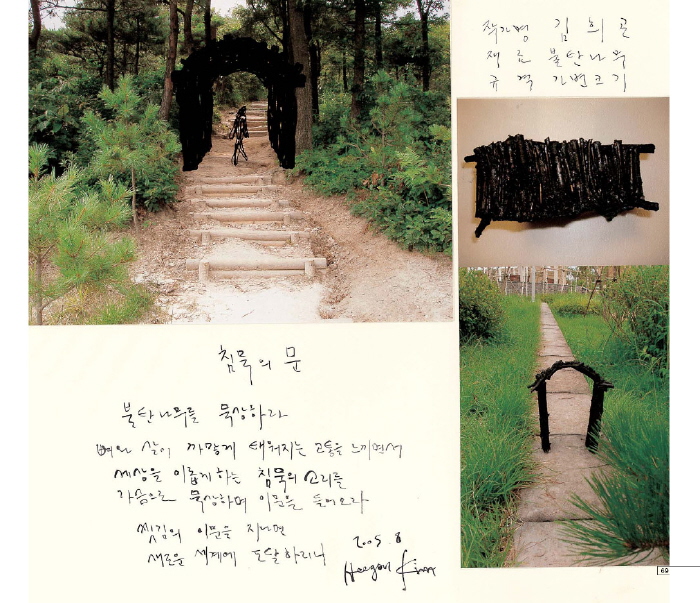 작가명 김희곤
재료 불탄나무
규격 가변크기
침묵의 문
불탄나무를 묵상하라
뼈와 살이 까맣게 태워지는 고통을 느끼면서
세상을 이롭게 하는 침묵의 소리를
가슴으로 묵상하며 이문을 들어오라
씻김의 이문을 지나면
새로운 세계에 도달하리니
2005. 8
Heegon Kim
69